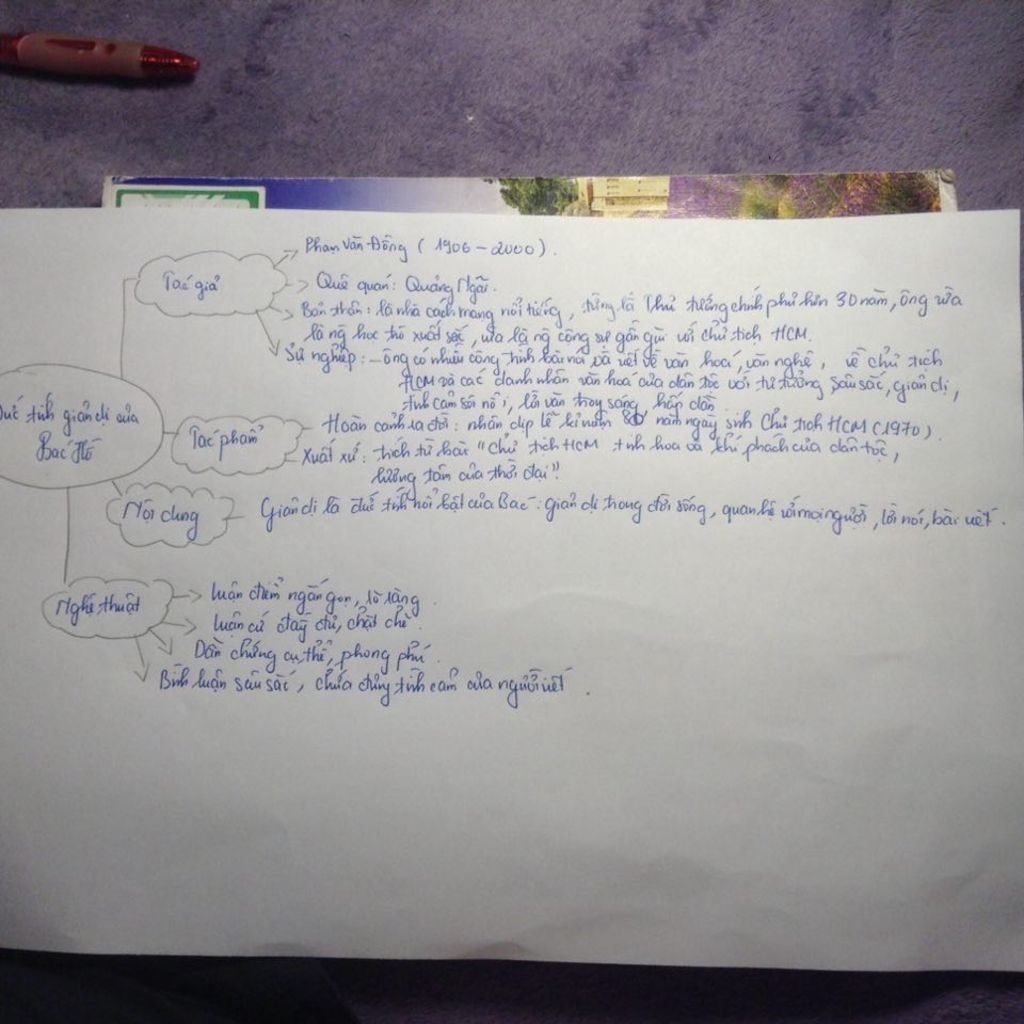 Phạm Văn Đồng ( 1906 - 2000 ).
Tác giả
Quê quán: Quảng Ngãi.
Bản thân: là nhà cách mạng nổi tiếng, từng là Thủ tướng chính phủ hơn 30 năm, ông vừa
là ng học trò xuất sắc, vừa là ng cộng sự gần gũi với chủ tịch HCM.
Sự nghiệp: - ông có nhiều công trình bài nói và viết về văn hoá, văn nghệ, về chủ tịch
HCM và các danh nhân văn hoá của dân tộc với tư tưởng sâu sắc, giản dị,
tình cảm sôi nổi, lời văn trong sáng, hấp dẫn.
Đức tính giản dị của
Bác Hồ
Tác phẩm
Hoàn cảnh ra đời: nhân dịp lễ kỉ niệm 80 năm ngày sinh Chủ tịch HCM (1970).
Xuất xứ: trích từ bài "Chủ tịch HCM tinh hoa và khí phách của dân tộc,
lương tâm của thời đại"
Nội dung
Giản dị là đức tính nổi bật của Bác: giản dị trong đời sống, quan hệ với mọi người, lời nói, bài viết.
Nghệ thuật
luận điểm ngắn gọn, rõ ràng.
luận cứ đầy đủ, chặt chẽ.
Dẫn chứng cụ thể, phong phú.
Bình luận sâu sắc, chứa đựng tình cảm của người viết.